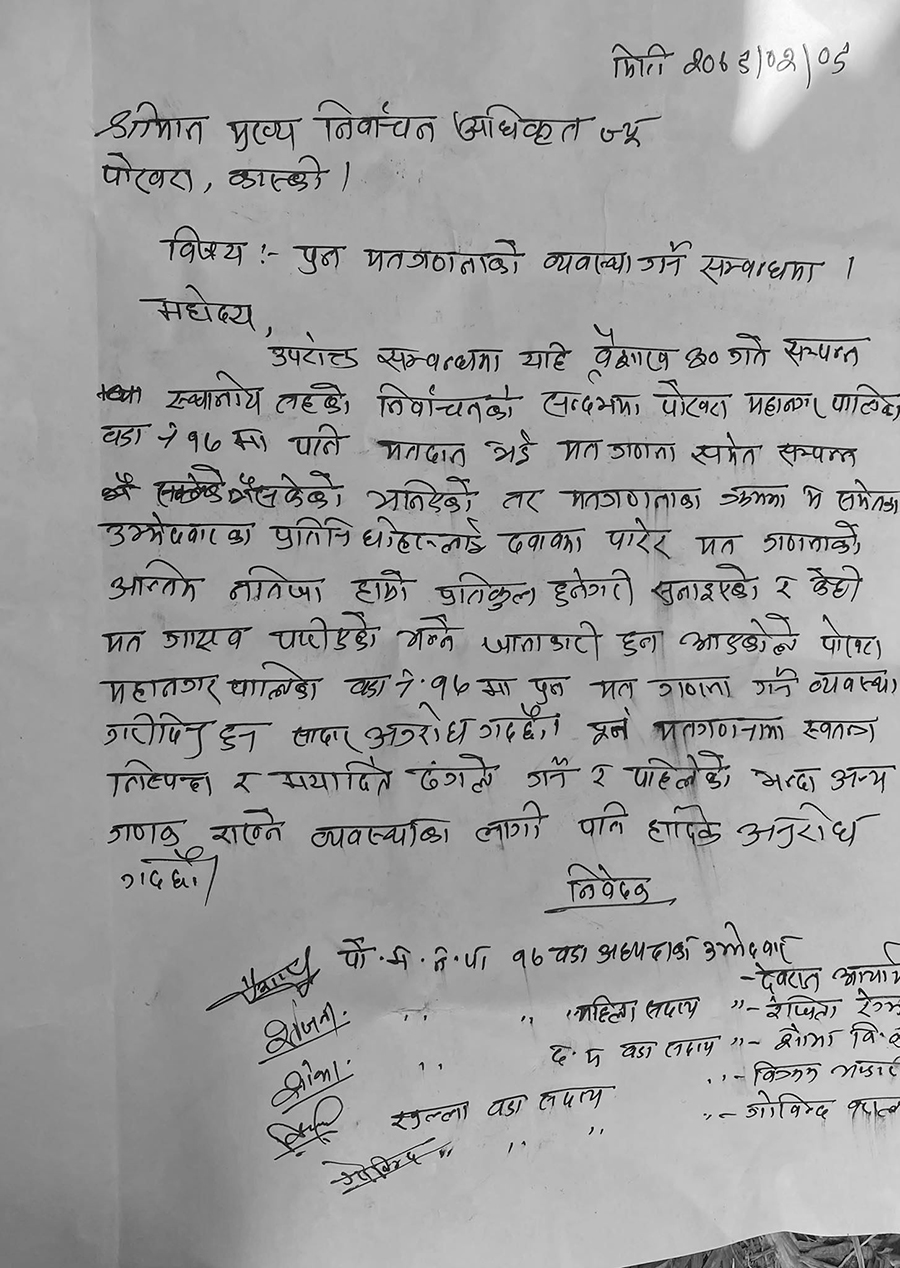 मिति २०७९/०२/०९
श्रीमान मुख्य निर्वाचन अधिकृत ज्यू
पोखरा, कास्की ।
विषय :- पुन मतगणनाको व्यवस्था गर्ने सम्वन्धमा ।
महोदय,
उपरोक्त सम्वन्धमा यहि वैशाख ३० गते सम्पन्न
स्थानीय तहको निर्वाचनको सर्न्दभमा पोखरा महानगर पालिका
वडा नं १७ मा पनि मतदान भई मत गणना समेत सम्पन्न
भैसकेको भनिएको तर मतगणनाका क्रममा म समेतका
उम्मेदवार का प्रतिनिधीहरुलाई दवावमा पारेर मत गणनाको
अन्तिम नतिजा हाम्रो प्रतिकुल हुनेगरी सुनाइएको र केही
मत गायव पारीएको भन्ने जानाकारी हुन आएकोले पोखरा
महानगर पालिका वडा नं. १७ मा पुन मत गणना गर्ने व्यवस्था
गरीदिनु हुन सादर अनुरोध गर्दछौं। पुन मतगणनामा स्वतन्त्र
निष्पक्ष र मर्यादित ढंगले गर्न र पहिलेको भन्दा अन्य
गणक राख्ने व्यवस्थाका लागी पनि हार्दिक अनुरोध
गर्दछौ।
निवेदक
पो.म.न.पा १७ वडा अध्यक्षका उम्मेदवार
- देवराज
रंजिता. " " महिला सदस्य "- रंजिता
शोभा. " द. म वडा सदस्य "- शोभा वि.क
खुल्ला वडा सदस्य "- विक्रम
गोविन्द " " " "- गोविन्द